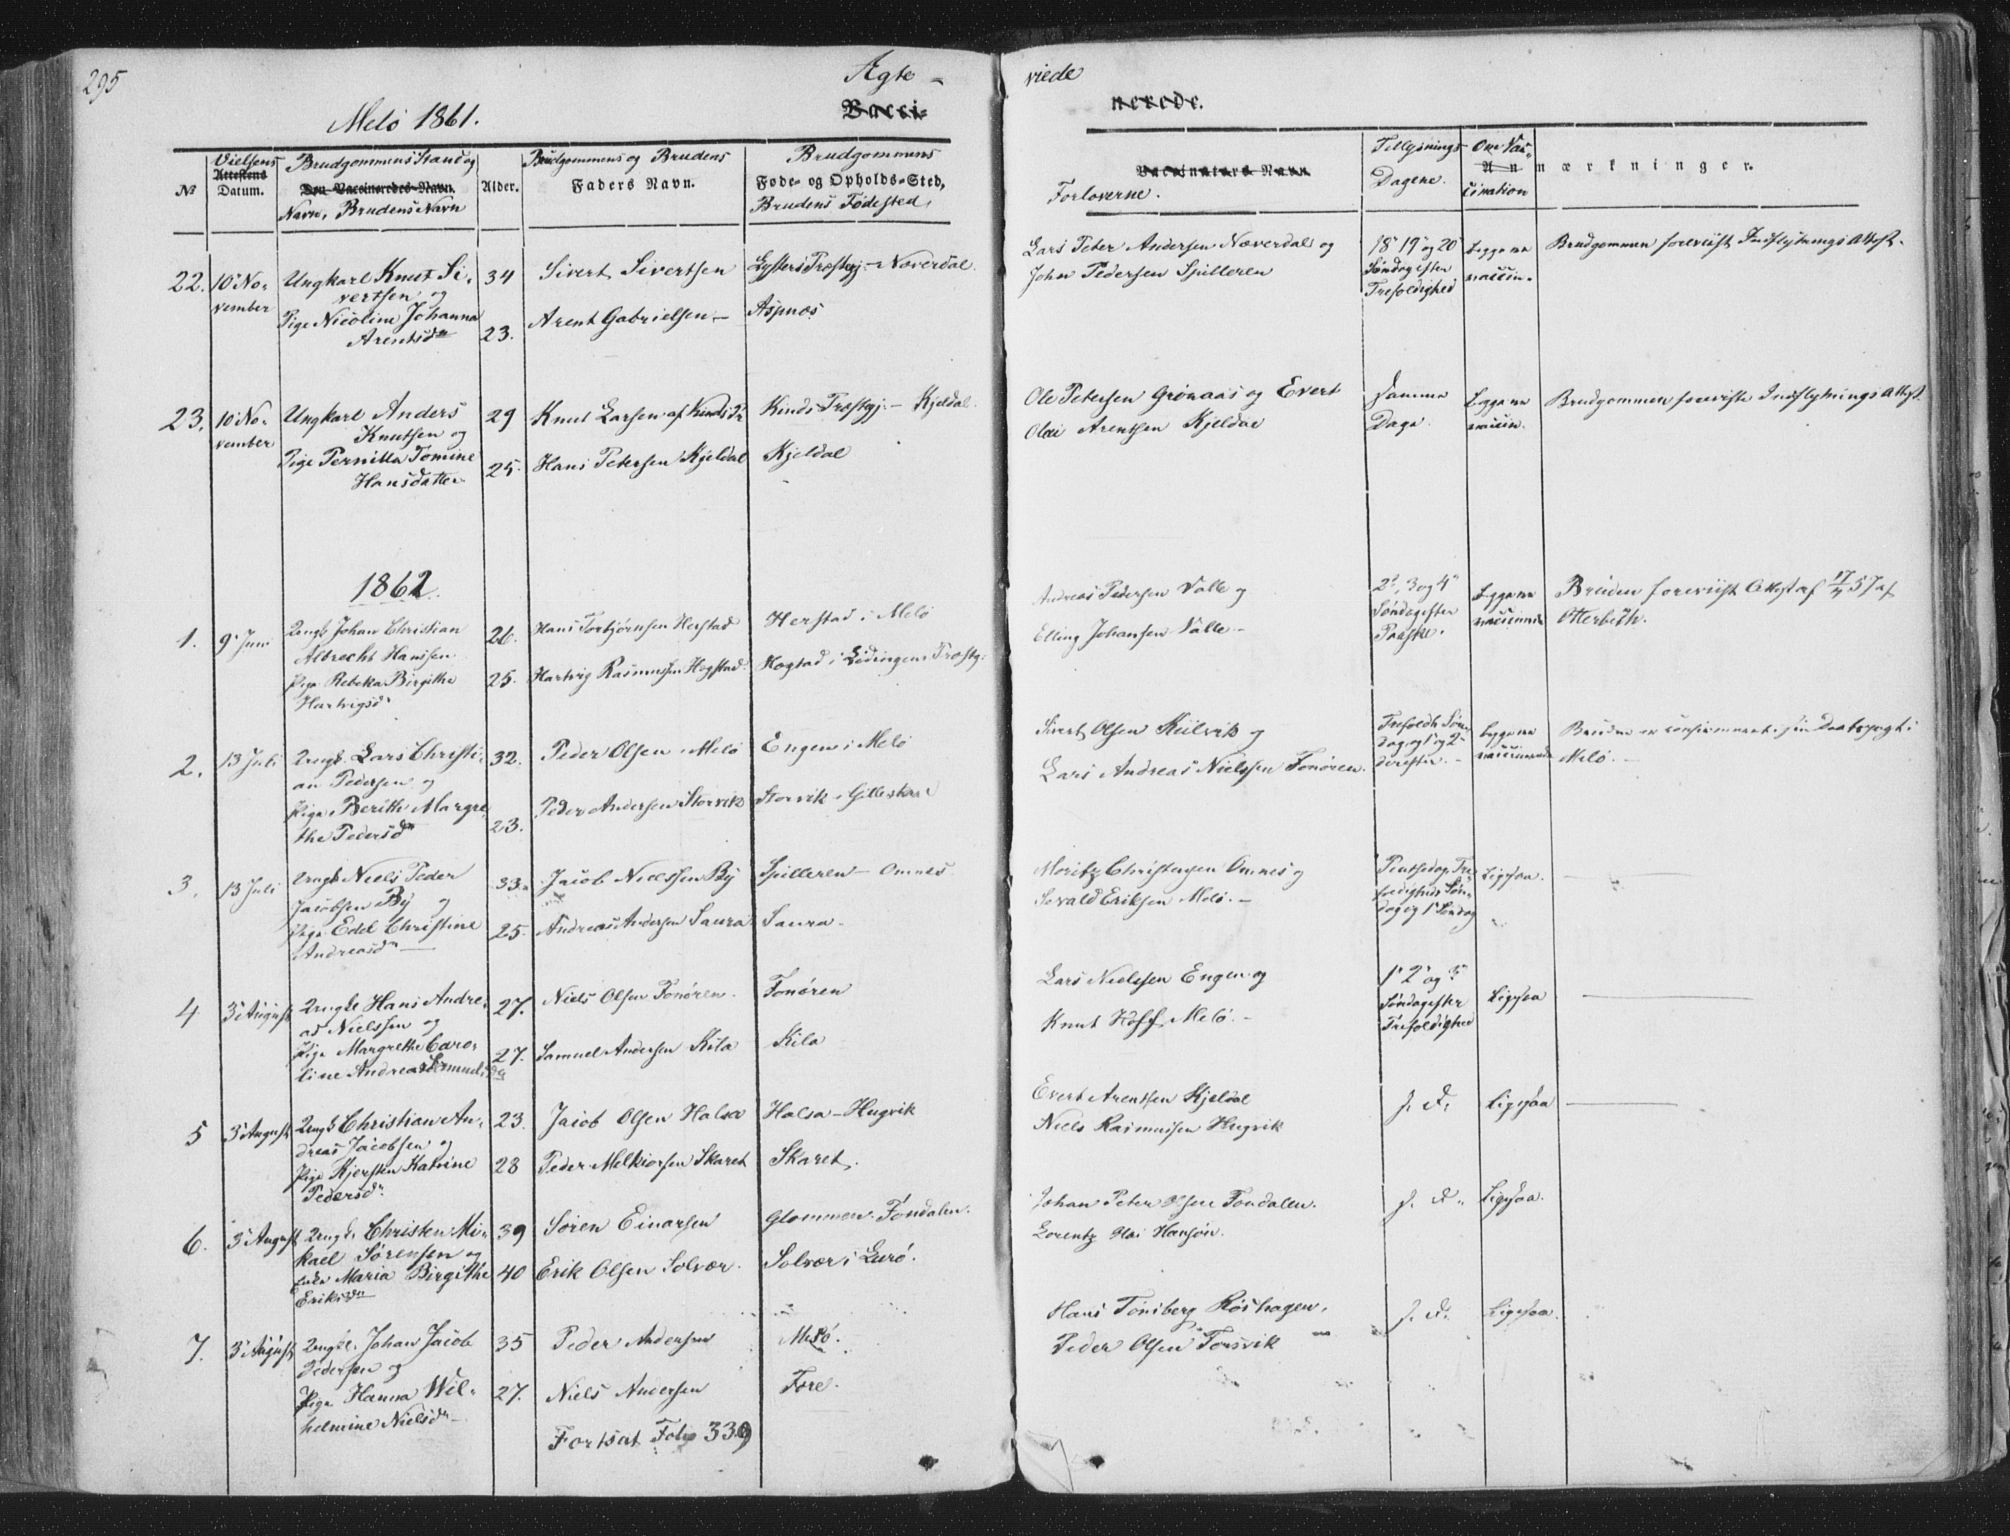 295
Ægte - viede
Melö 1861.
Vacci= nerede.
No
Vielsens
Attestens
Datum.
Brudgommens Stand og
Den Vaccineredes Navn.
Navn, Brudens Navn
Alder.
Brudgommens og Brudens
Faders Navn.
Brudgommens
Føde- og Opholds-Sted,
Brudens Födested,
Vaccinators Navn.
Forloverne.
Tillysnings-
Dagene.
Om Vac-
cination
Anmærkninger.
22. 10 No-
vember
Ungkarl Knut Si-
vertsen og
Pige Nicoline Johanna
Arentsdr
34
23.
Sivert Sivertsen
Arent Gabrielsen -
Lysters Præstgj. - Næverdal.
Aspnæs
Lars Peter Andersen Næverdal og
Johan Pedersen Spilleren
18' 19' og 20'
Søndag efter
Trefoldighed
begge ere
vaccin.
Brudgommen foreviist Indflytnings Attest.
23. 10 No-
vember
Ungkarl Anders
Knutsen og
Pige Pernilla Tomine
Hansdatter
29
25.
Knut Larsen af Kinds Pr
Hans Petersen Kjeldal
Kinds Præstgj. - Kjeldal.
Kjeldal
Ole Petersen Grönaas og Evert
Olai Arentsen Kjeldal
samme
Dage.
begge ere
vaccin.
Brudgommen foreviste Indflytnings Attest.
1862.
1. 9' Juni
Ungk Johan Christian
Albrecht Hansen
Pige Rebeka Birgithe
Hartvigsdr
26.
25.
Hans Torbjörnsen Herstad
Hartvig Rasmussen Hogstad
Herstad i Melö
Hogstad i Lödingens Præstg:
Andreas Pedersen Valle og
Elling Johansen Valle -
2', 3 og 4'
Søndag efter
Paaske.
begge ere
vaccinerede
Bruden foreviist Attest af 17/4 57 af
Otterbeth.
2. 13 Juli
Ungk. Lars Christi-
an Pedersen og
Pige Berith Margre-
the Pedersdr
32.
23.
Peder Olsen Melö
Peder Andersen Storvik
Engen i Melö
Storvik i Gilleskaal
Sivert Olsen Kiilvik og
Lars Andreas Nielssen Fonören.
Trefoldh. Søn-
dag og 1' og 2'
derefter. -
begge ere
vaccinerede
Bruden er confirmeret
Melö. -
3. 13 Juli
Ungk Niels Peder
Jacobsen By og
Pige Edel Christine
Andreasdr
33.
25.
Jacob Nielssen By
Andreas Andersen Saura
Spilleren - Omnes
Saura -
Moritz Christensen Omnes og
Sevald Eriksen Melö. -
Pintsedag, Tre-
foldigheds Søn-
dag og 1' Søndag
Ligesaa.
4 3' August
Ungk Hans Andre-
as Nielssen og
Pige Margrethe Caro-
line Andrea Samuelsdr
27.
27.
Niels Olsen Fonören.
Samuel Andersen Kila
Fonören
Kila
Lars Nielssen Engen og
Knut Hoff Melö. -
1' 2' og 3'
Søndag efter
Trefoldighed
Ligesaa
5 3' August
Ungk Christian An-
dreas Jacobsen og
Pige Kjersten Katrine
Pedersdr
23.
28
Jacob Olsen Halsa
Peder Melkiorsen Skaret
Halsa - Hugvik
Skaret.
Evert Arentsen Kjeldal
Niels Rasmussen Hugvik
s. D.
Ligesaa
6. 3' August
Ungk. Christen Mi-
kael Sörensen og
Enke Maria Birgithe
Eriksdr
39
40
Sören Einarsen
Erik Olsen Solvær.
Glommen. Fondalen.
Solvær i Lurö.
Johan Peter Olsen Fondalen.
Lorentz Olai Hansön.
s. D.
Ligesaa.
7. 3' August
Ungk. Johan Jacob
Pedersen og
Pige Hanna Wil-
helmine Nielsdr -
35
27.
Peder Andersen
Niels Andersen
Melö.
Fore.
Hans Tönsberg Röshagen,
Peder Olsen Forsvik
s. D.
Ligesaa.
Fortsat Folio 339